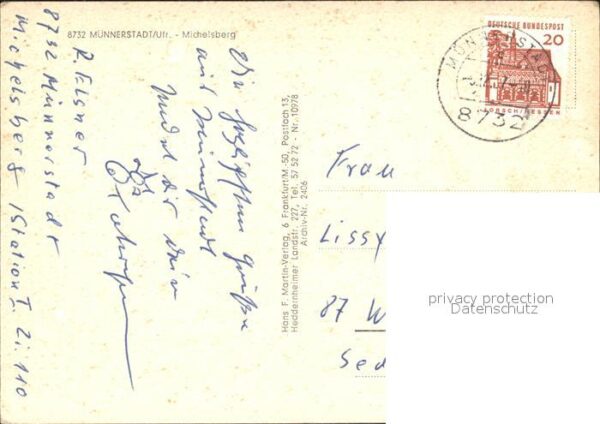 8732 MÜNNERSTADT/Ufr. - Michelsberg
R. Elsner
8732 Münnerstadt
Michelsberg Station I Zi. 110
Die herzlichsten Grüße
aus Münnerstadt
sendet Dir Dein
Hans F. Martin-Verlag, 6 Frankfurt/M.-50, Postfach 13,
Heddernheimer Landstr. 227, Tel. 57 52 72 - Nr. 10978
Archiv-Nr. 2406
DEUTSCHE BUNDESPOST
20
LORSCH/HESSEN
MÜNNERSTADT
8732
Frau
Lissy
87 W
Sed
privacy protection
Datenschutz